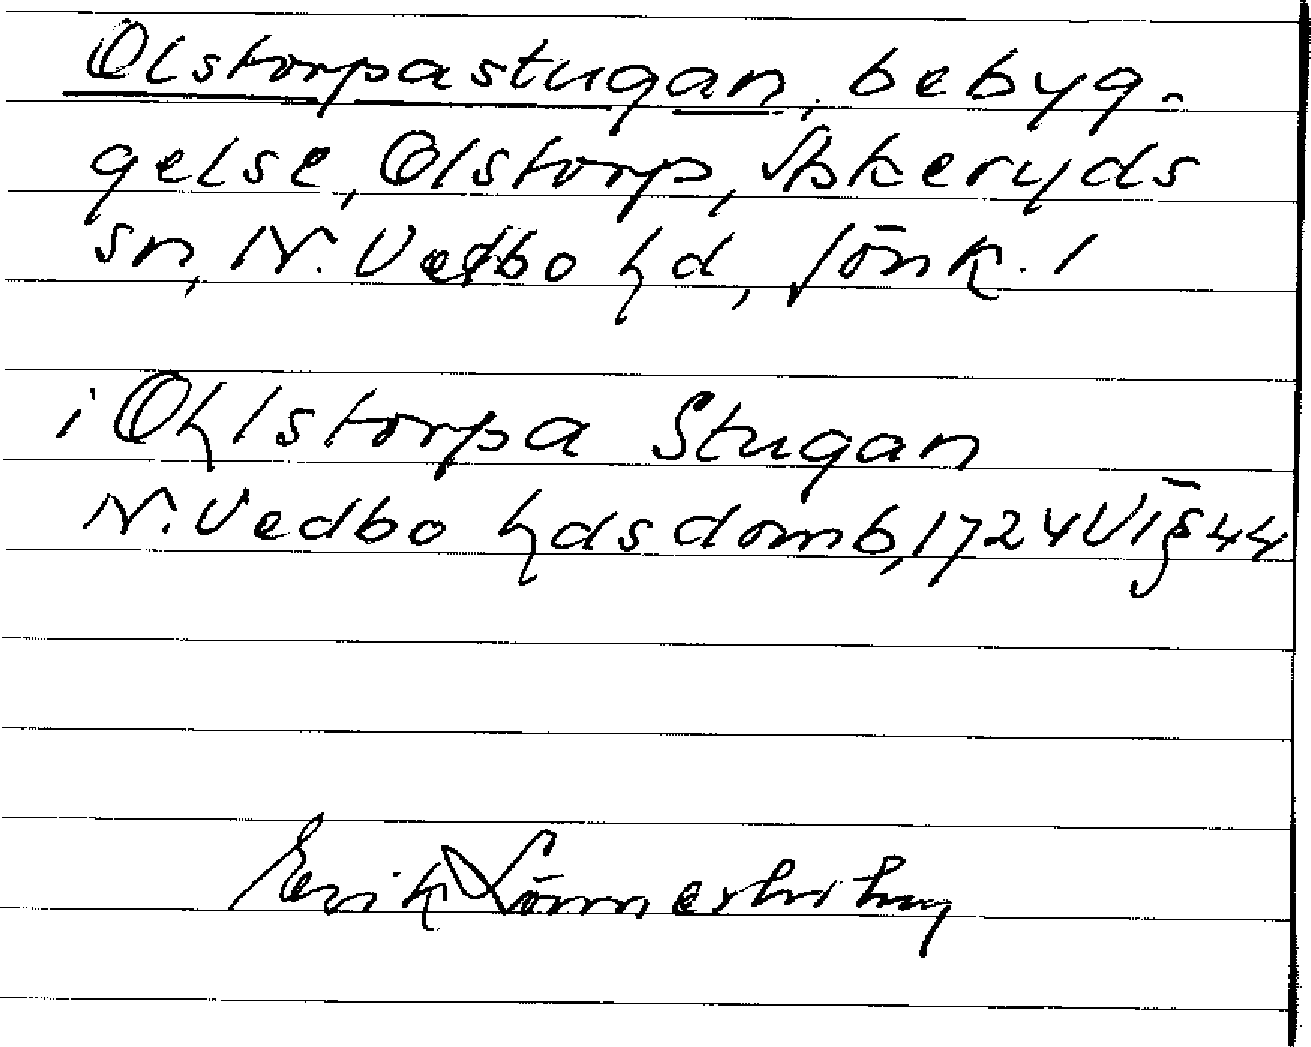 Olstorpastugan, bebyg-
gelse, Olstorp, Askeryds
sn, N. Vedbo hd, Jönk. l
i Ohlstorpa Stugan
N. Vedbo hdsdomb, 1724 VT § 44
Erik